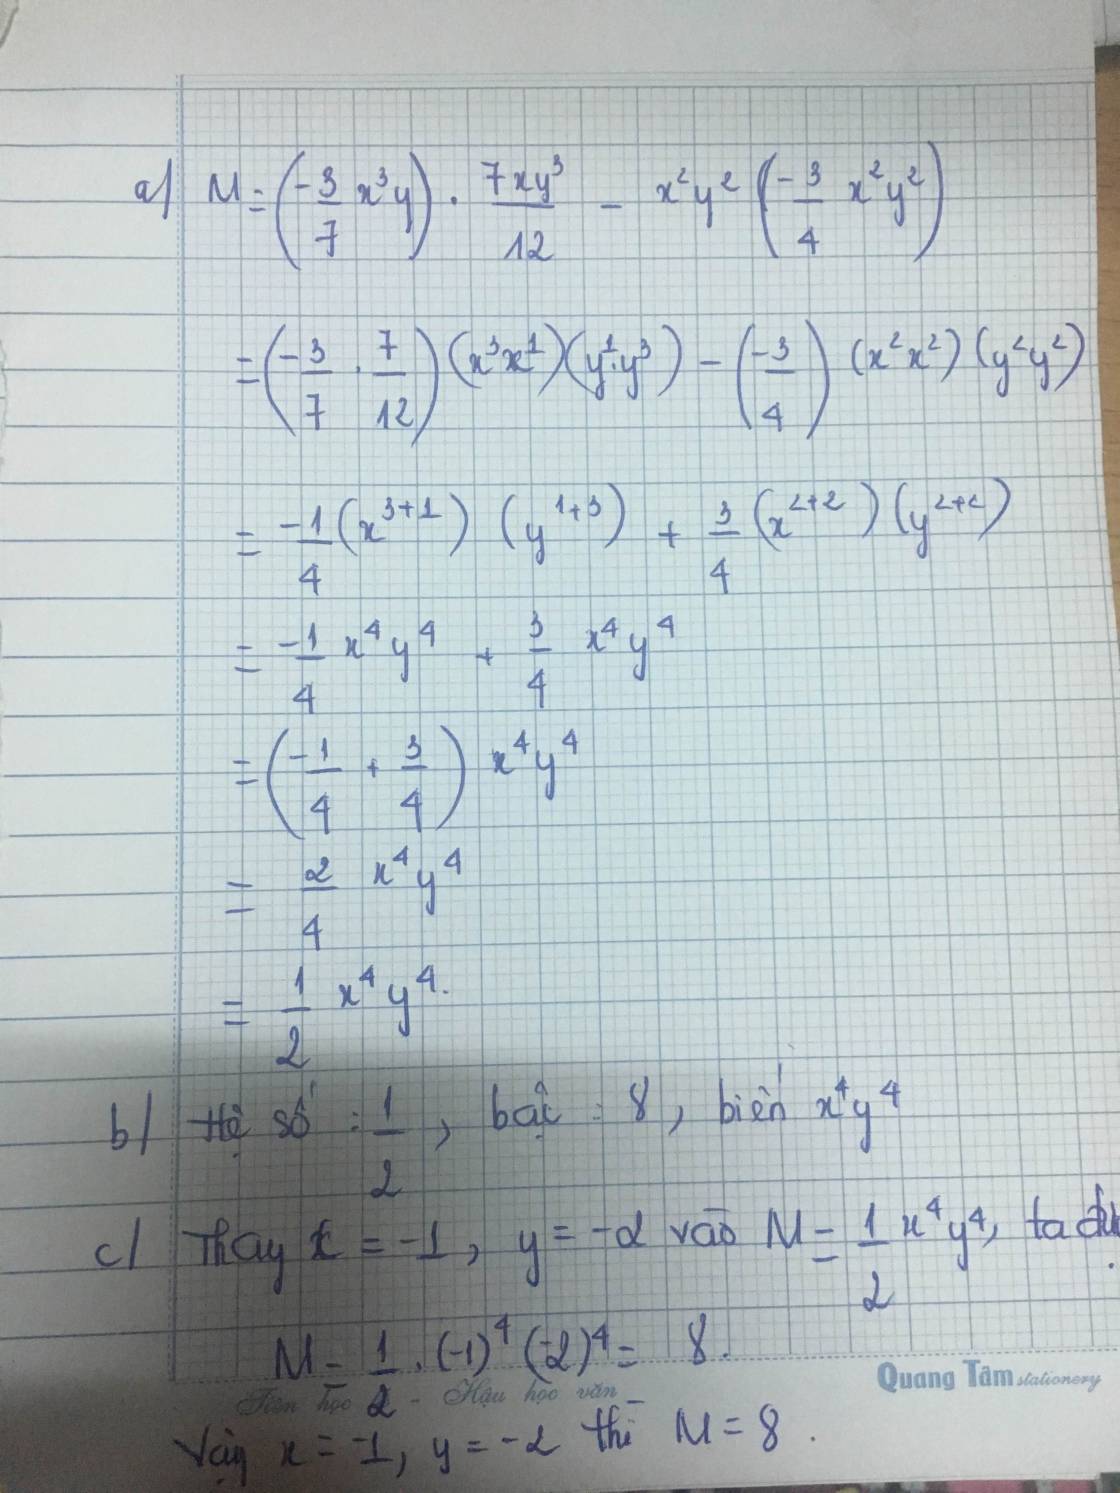 a) M = (-3/7 x³y) · 7xy³/12 - x²y² (-3/4 x²y²)
= (-3/7 · 7/12) (x³x¹)(y¹·y³) - (-3/4) (x²x²) (y²y²)
= -1/4 (x³⁺¹) (y¹⁺³) + 3/4 (x²⁺²) (y²⁺²)
= -1/4 x⁴y⁴ + 3/4 x⁴y⁴
= (-1/4 + 3/4) x⁴y⁴
= 2/4 x⁴y⁴
= 1/2 x⁴y⁴.
b) Hệ số : 1/2, bậc : 8, biến x⁴y⁴
c) Thay x = -1, y = -2 vào M = 1/2 x⁴y⁴, ta đư
M = 1/2 · (-1)⁴ (-2)⁴ = 8.
Quang Tâm stationery
Tiên học - Hậu học văn
Vậy x = -1, y = -2 thì M = 8.